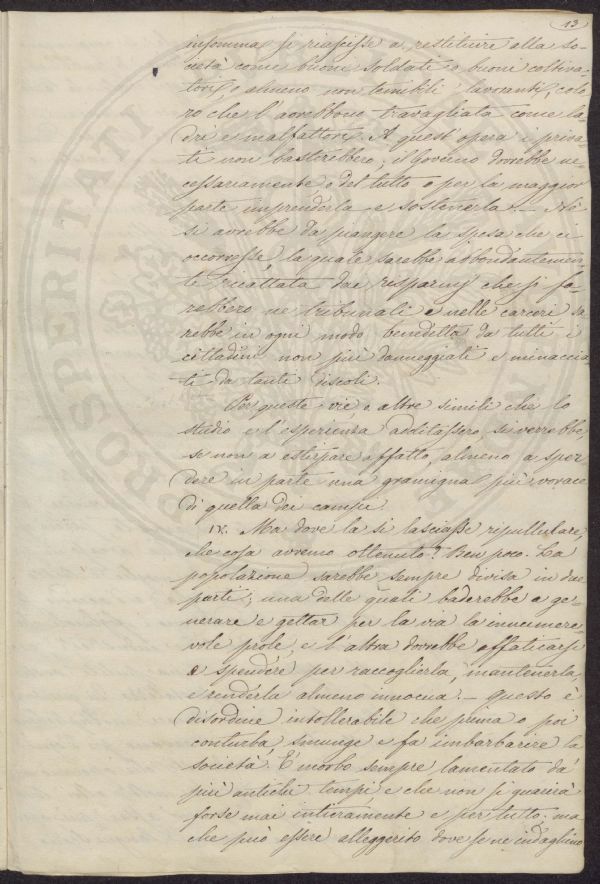 13
insomma si riuscisse a restituire alla so-
cietà come buoni soldati o buoni coltiva-
tori, o almeno non temibili lavoranti, colo
ro che l'avrebbono travagliata come la-
dri e malfattori. A quest'opera i priva-
ti non basterebbero; il Governo dovrebbe ne-
cessariamente o del tutto o per la maggior
parte imprenderla e sostenerla. — Nè
si avrebbe da piangere la spesa che ci
occorresse la quale sarebbe abbondantemen-
te ricattata dai risparmj che si fa-
rebbero ne' tribunali e nelle carceri sa
rebbe in ogni modo benedetta da tutti i
cittadini non più danneggiati e minaccia
ti da tanti discoli.
Per queste vie e altre simili che lo
studio e l'esperienza additassero, si verrebbe,
se non a estirpare affatto, almeno a sper
dere in parte una gramigna più vorace
di quella dei campi.
IV. Ma dove la si lasciasse ripullulare,
che cosa avremo ottenuto? Ben poco. La
popolazione sarebbe sempre divisa in due
parti; una delle quali baderebbe a ge-
nerare e gettar per la via la innumere-
vole prole, e l'altra dovrebbe affaticarsi
e spendere per raccoglierla, mantenerla,
e renderla almeno innocua. — Questo è
disordine intollerabile che prima o poi
conturba, smunge e fa imbarbarire la
società. È morbo sempre lamentato da'
più antichi tempi e che non si guarirà
forse mai intieramente e per tutto; ma
che può essere alleggerito dove se ne indaghino
PROSPERITATI